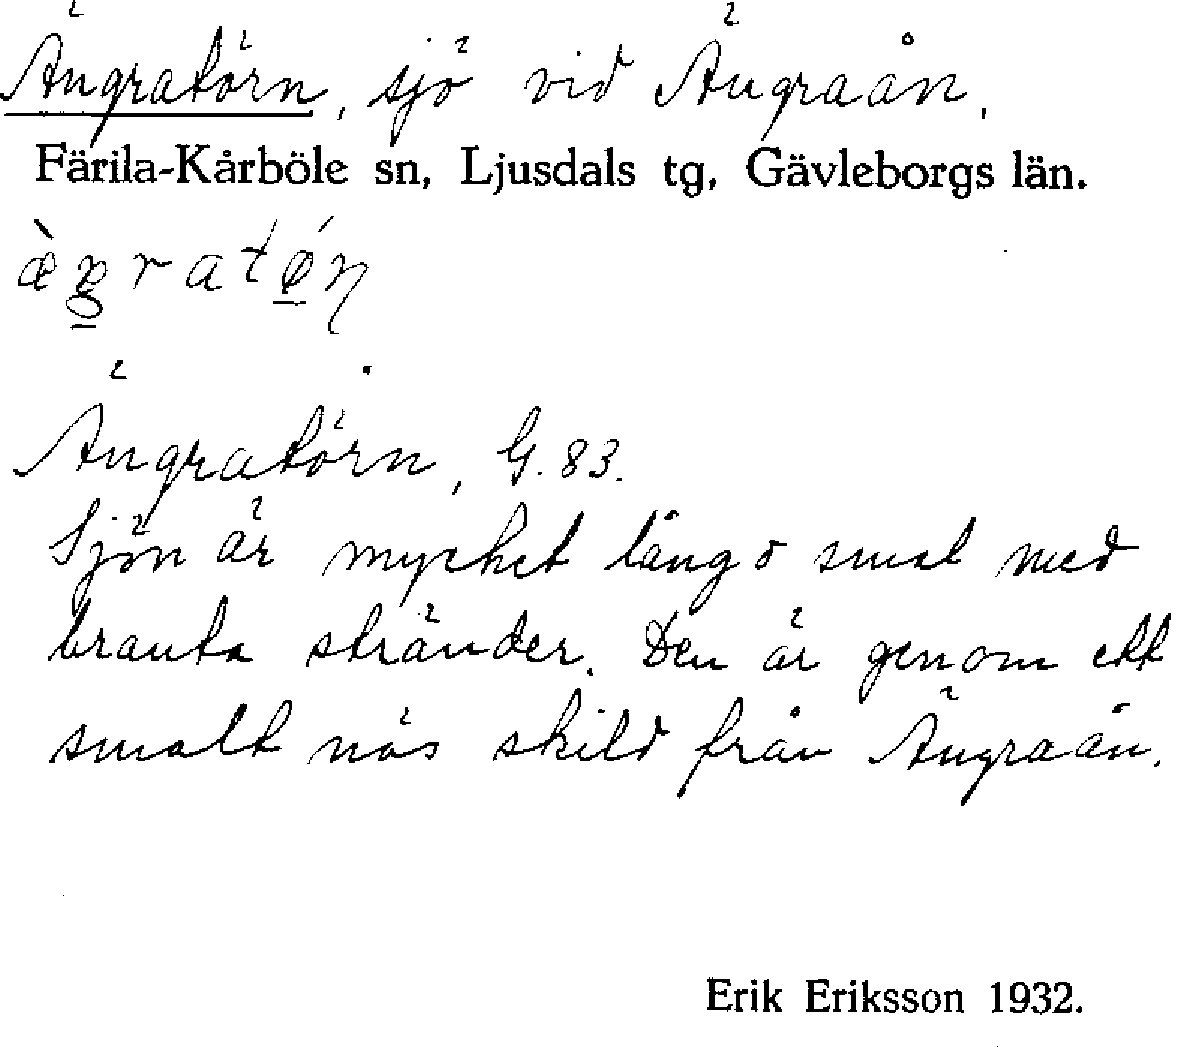 Ängratörn, sjö vid Ängraån.
Färila-Kårböle sn, Ljusdals tg, Gävleborgs län.
Ängratörn, G. 83.
Sjön är mycket lång o smal med
branta stränder. Den är genom ett
smalt näs skild från Ängraån.
Erik Eriksson 1932.